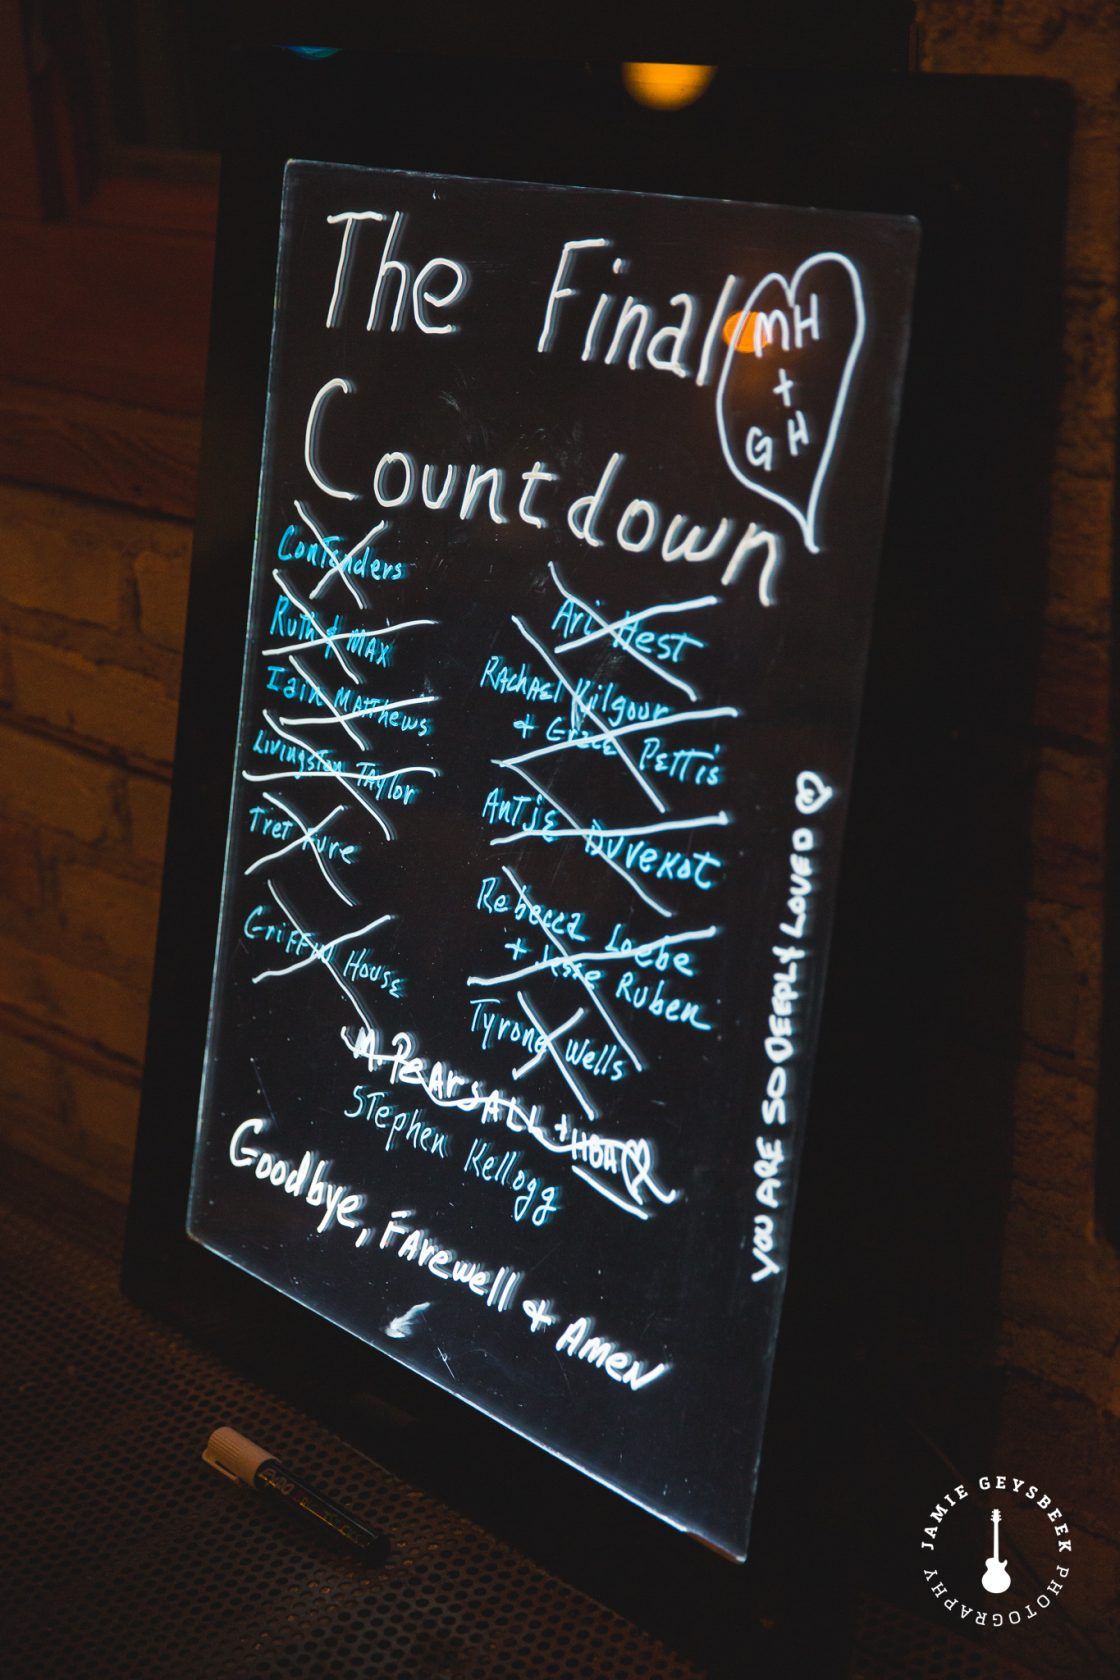 The Final
Countdown
MH
+
GH
Contenders
Ruth & Max
Iain Matthews
Livingston Taylor
Tret Fure
Griffin House
Ari Hest
Rachael Kilgour
+ Grace Pettis
Antje Duvekot
Rebecca Loebe
+ Jesse Ruben
Tyrone Wells
M. Pearsall +
Stephen Kellogg
Goodbye, Farewell & Amen
YOU ARE SO DEEPLY LOVED
JAMIE GEYSBEEK PHOTOGRAPHY